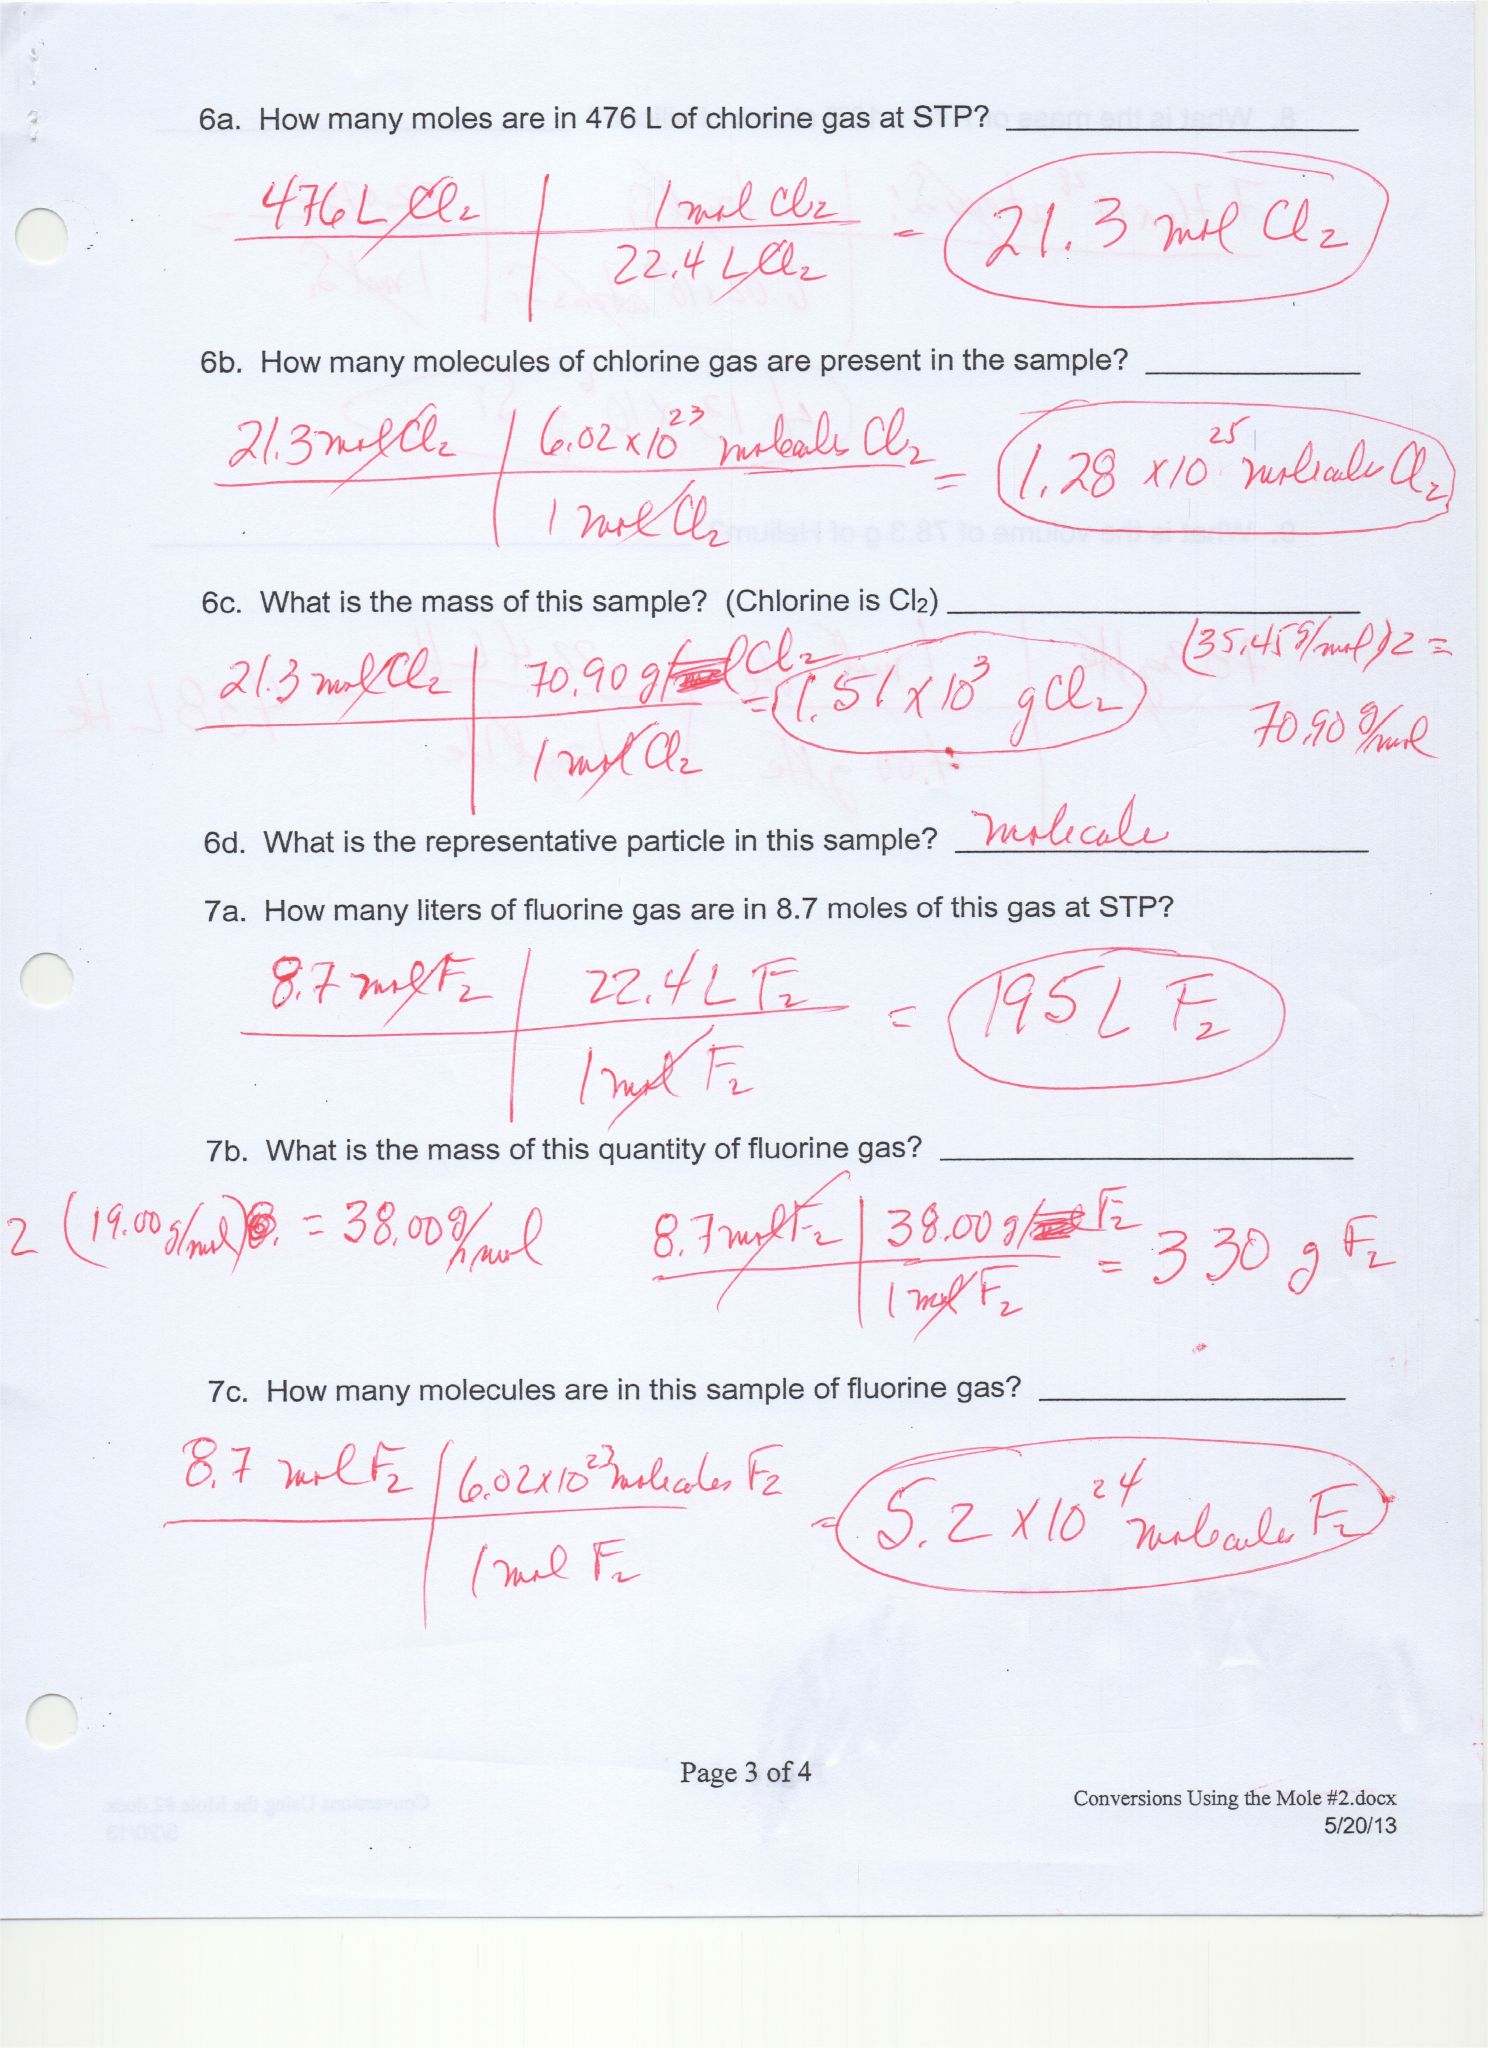 6a. How many moles are in 476 L of chlorine gas at STP?
476 L Cl₂ | 1 mol Cl₂
22.4 L Cl₂
= 21.3 mol Cl₂
6b. How many molecules of chlorine gas are present in the sample?
21.3 mol Cl₂ | 6.02 x 10²³ molecules Cl₂
1 mol Cl₂
= 1.28 x 10²⁵ molecules Cl₂
6c. What is the mass of this sample? (Chlorine is Cl₂)
(35.45 g/mol) 2 =
70.90 g/mol
21.3 mol Cl₂ | 70.90 g Cl₂
1 mol Cl₂
= 1.51 x 10³ g Cl₂
6d. What is the representative particle in this sample? molecule
7a. How many liters of fluorine gas are in 8.7 moles of this gas at STP?
8.7 mol F₂ | 22.4 L F₂
1 mol F₂
= 195 L F₂
7b. What is the mass of this quantity of fluorine gas?
2 (19.00 g/mol) = 38.00 g/mol
8.7 mol F₂ | 38.00 g F₂
1 mol F₂
= 330 g F₂
7c. How many molecules are in this sample of fluorine gas?
8.7 mol F₂ | 6.02 x 10²³ molecules F₂
1 mol F₂
= 5.2 x 10²⁴ molecules F₂
Page 3 of 4
Conversions Using the Mole #2.docx
5/20/13